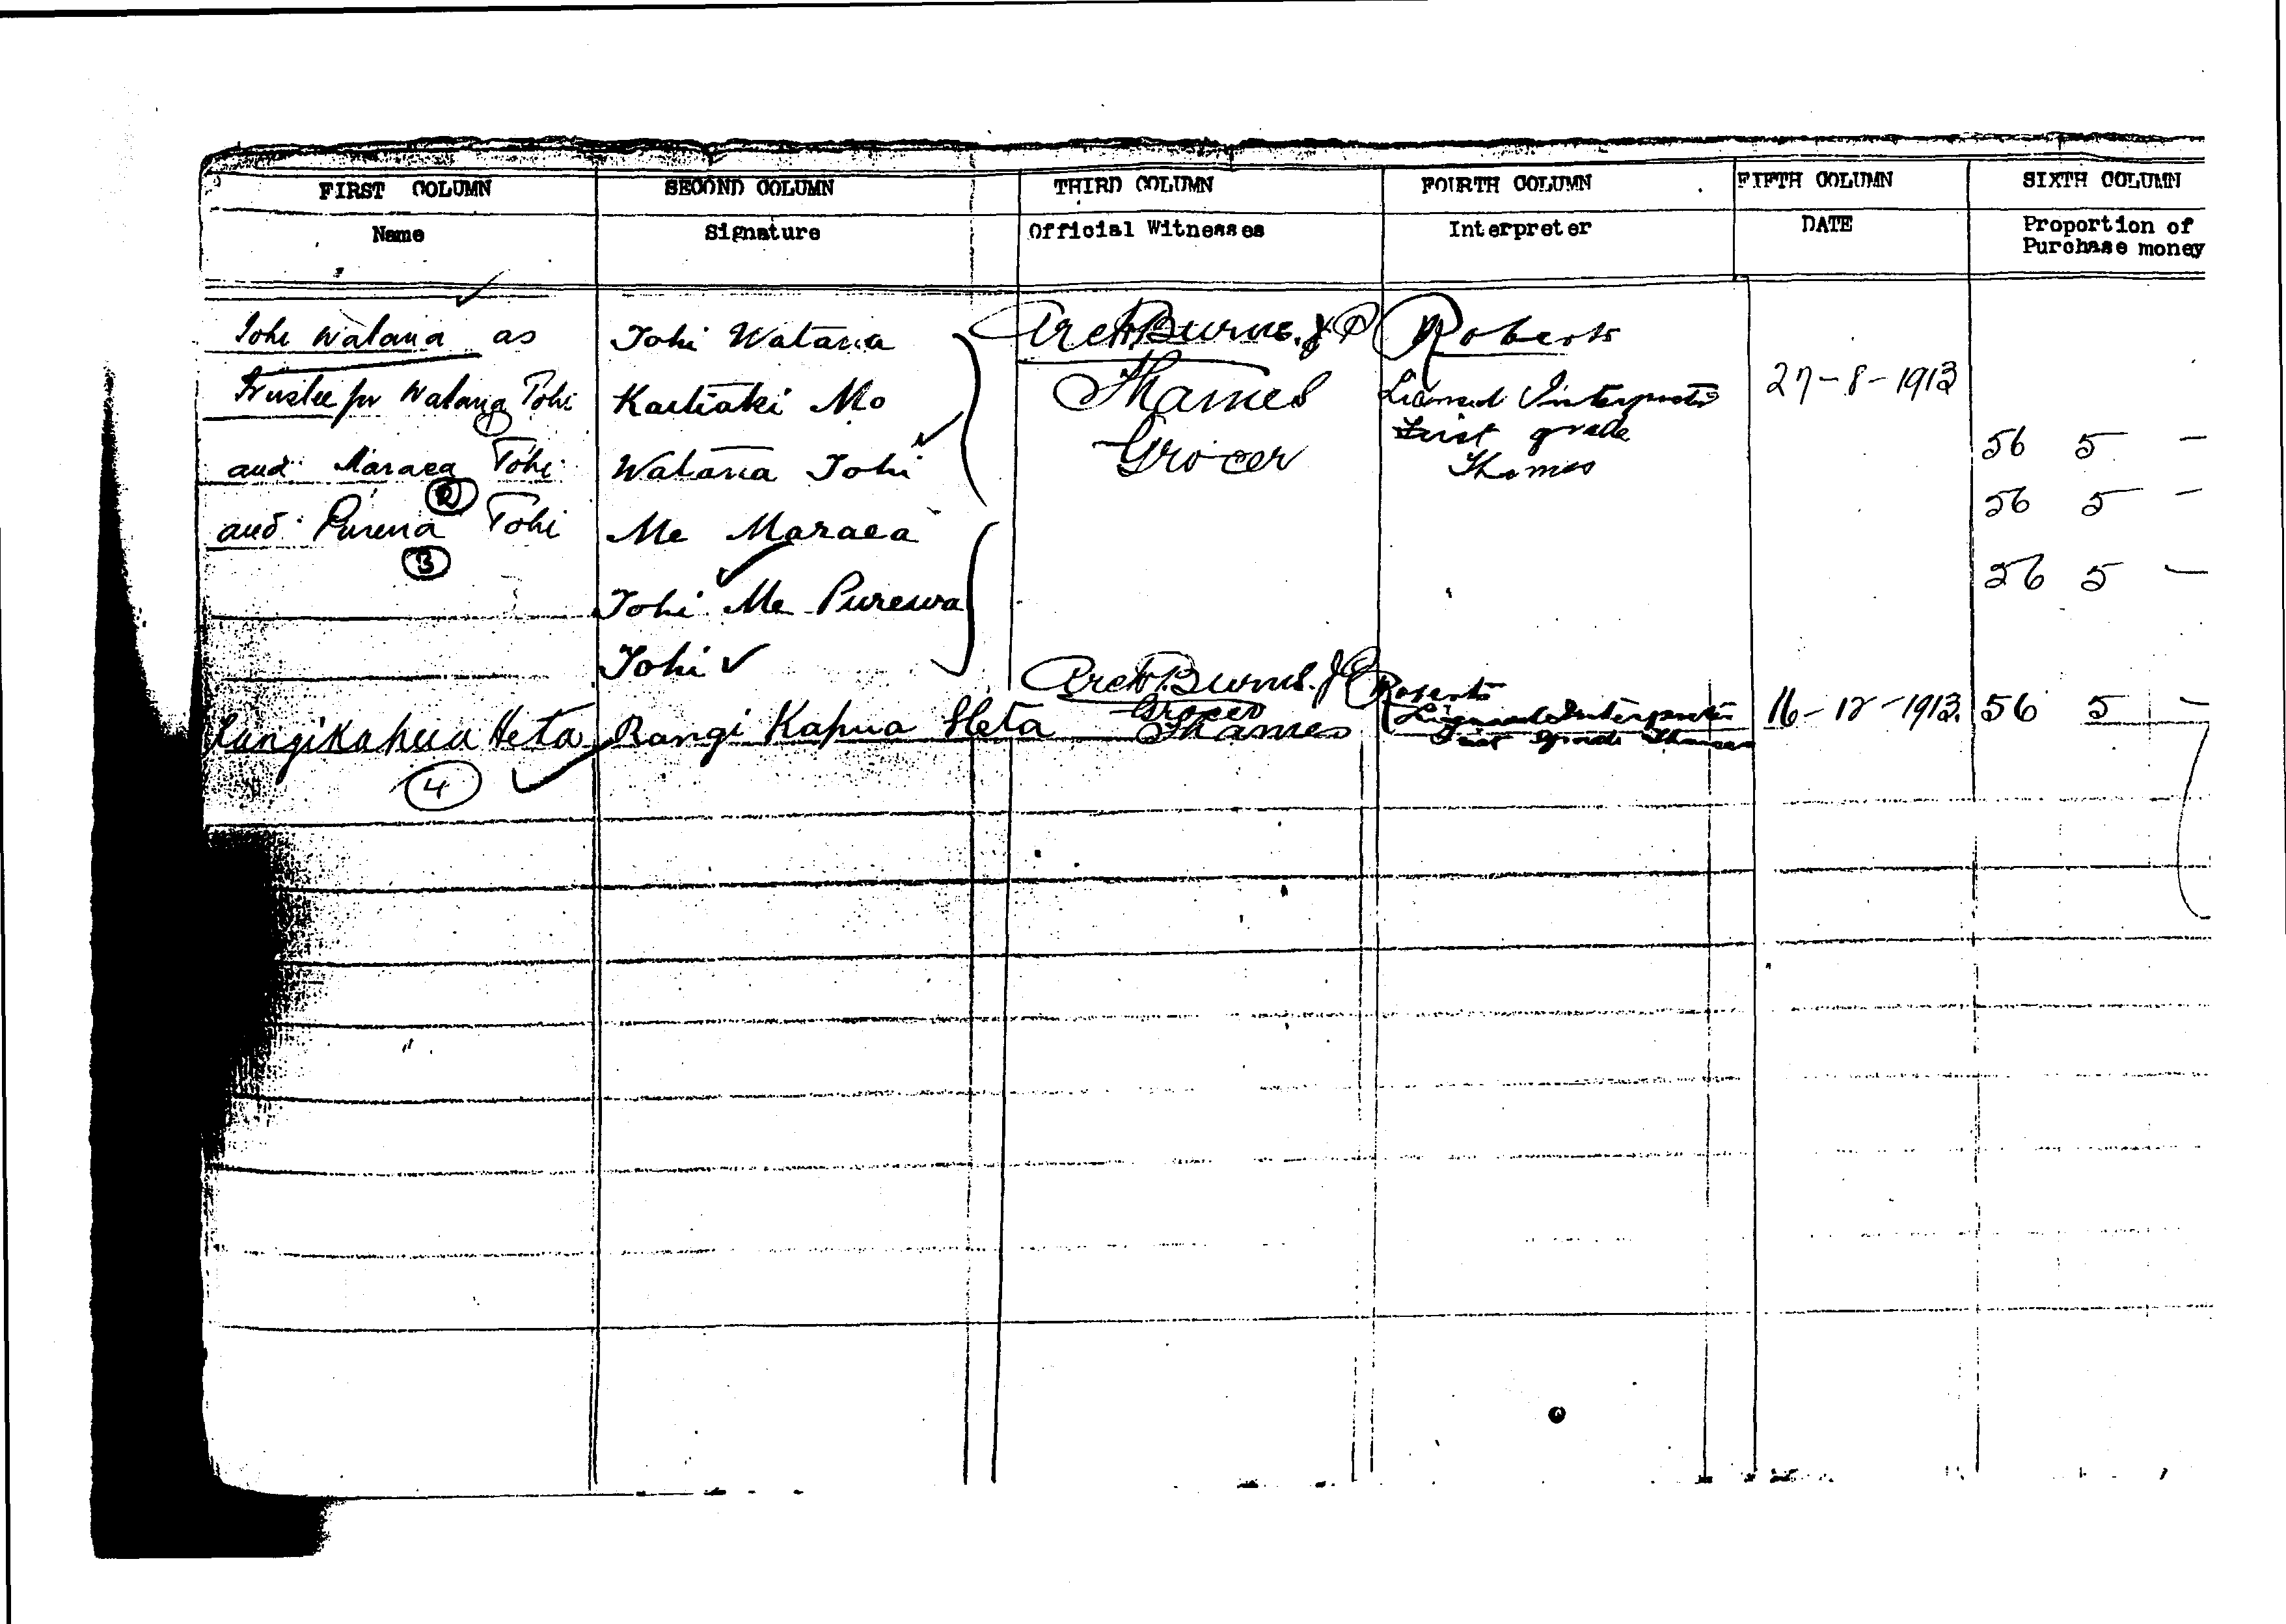 FIRST COLUMN SECOND COLUMN THIRD COLUMN FOURTH COLUMN FIFTH COLUMN SIXTH COLUMN
Name Signature Official Witnesses Interpreter DATE Proportion of
Purchase money
Tohi Watana as Tohi Watana Arch Burns. J P Roberts
Trustee for Watana Tohi Kaitiaki Mo Thames Licensed Interpreter 27-8-1913
First grade
and Maraea Tohi Watana Tohi Grocer Thames 56 5 -
2
and Purewa Tohi Me Maraea 56 5 -
3
Tohi Me Purewa 56 5 -
Tohi
Arch Burns. J P Roberts
Rangikapua Heta Rangi Kapua Heta Grocer Licensed Interpreter 16-12-1913. 56 5 -
Thames First grade Thames
4